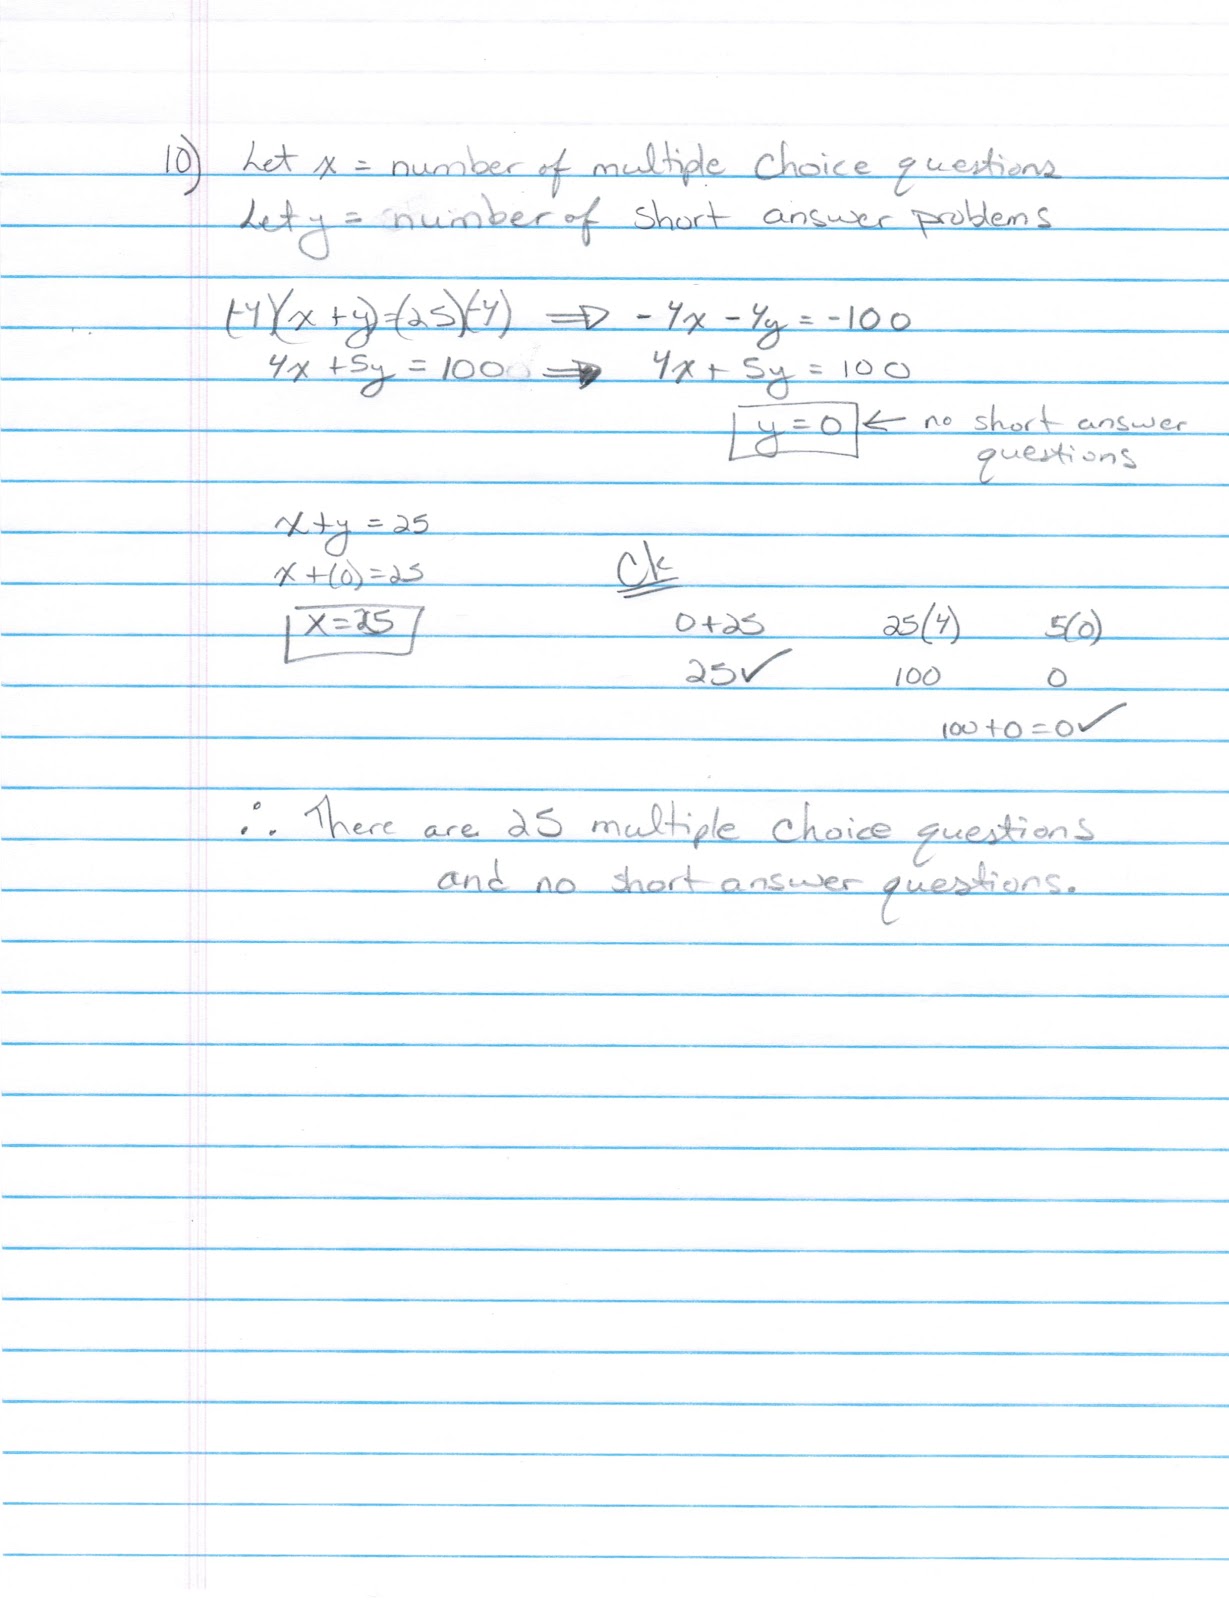 10) Let x = number of multiple choice questions
Let y = number of short answer problems
(-4)(x + y)=(25)(-4) ⇒ -4x - 4y = -100
4x + 5y = 100 ⇒ 4x + 5y = 100
y = 0 ← no short answer
questions
x + y = 25
x + (0) = 25
x = 25
Ck
0+25 25(4) 5(0)
25✓ 100 0
100 + 0 = 0✓
∴ There are 25 multiple choice questions
and no short answer questions.